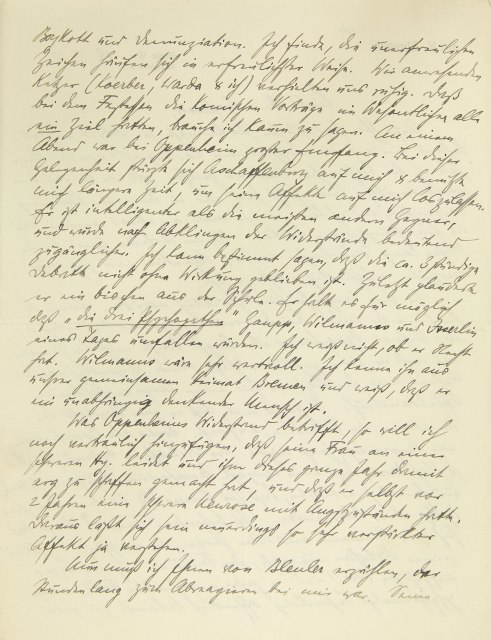 Boykott und Denunziation. Ich finde, die unerfreulichen
Zeichen häufen sich in erfreulichster Weise. Wir anwesenden
Ketzer (Koerber, Warda & ich) verhielten uns ruhig. Daß
bei dem Festessen die komischen Vorträge im Wesentlichen alle
ein Ziel hatten, brauche ich kaum zu sagen. An einem
Abend war bei Oppenheim großer Empfang. Bei dieser
Gelegenheit stürzte sich Aschaffenburg auf mich & benutzte
mich längere Zeit, um seine Affekte auf mich loszulassen.
Er ist intelligenter als die meisten andern Gegner,
und würde nach Abklingen der Widerstände bedeutend
zugänglicher. Ich kann bestimmt sagen, daß die ca. 3 stündige
Debatte nicht ohne Wirkung geblieben ist. Zuletzt plauderte
er ein bischen aus der Schule. Er hält es für möglich
daß „die drei Gaupp, Wilmanns und
eines Tages umfallen würden. Ich weiß nicht, ob er Recht
hat. Wilmanns wäre sehr wertvoll. Ich kenne ihn aus
unsrer gemeinsamen Heimat Bremen und weiß, daß er
ein unabhängig denkender Mensch ist.
Was Oppenheims Widerstand betrifft, so will ich
noch vertraulich hinzufügen, daß seine Frau an einer
schweren Hy. leidet und ihm dieses ganze Jahr damit
arg zu schaffen gemacht hat, und daß er selbst vor
2 Jahren eine schwere Neurose mit Angstzuständen hatte.
Daraus läßt sich sein neuerdings so sehr verstärkter
Affekt ja verstehen.
Nun muß ich Ihnen von Bleuler erzählen, der
stundenlang zum Abreagieren bei mir war. Seine